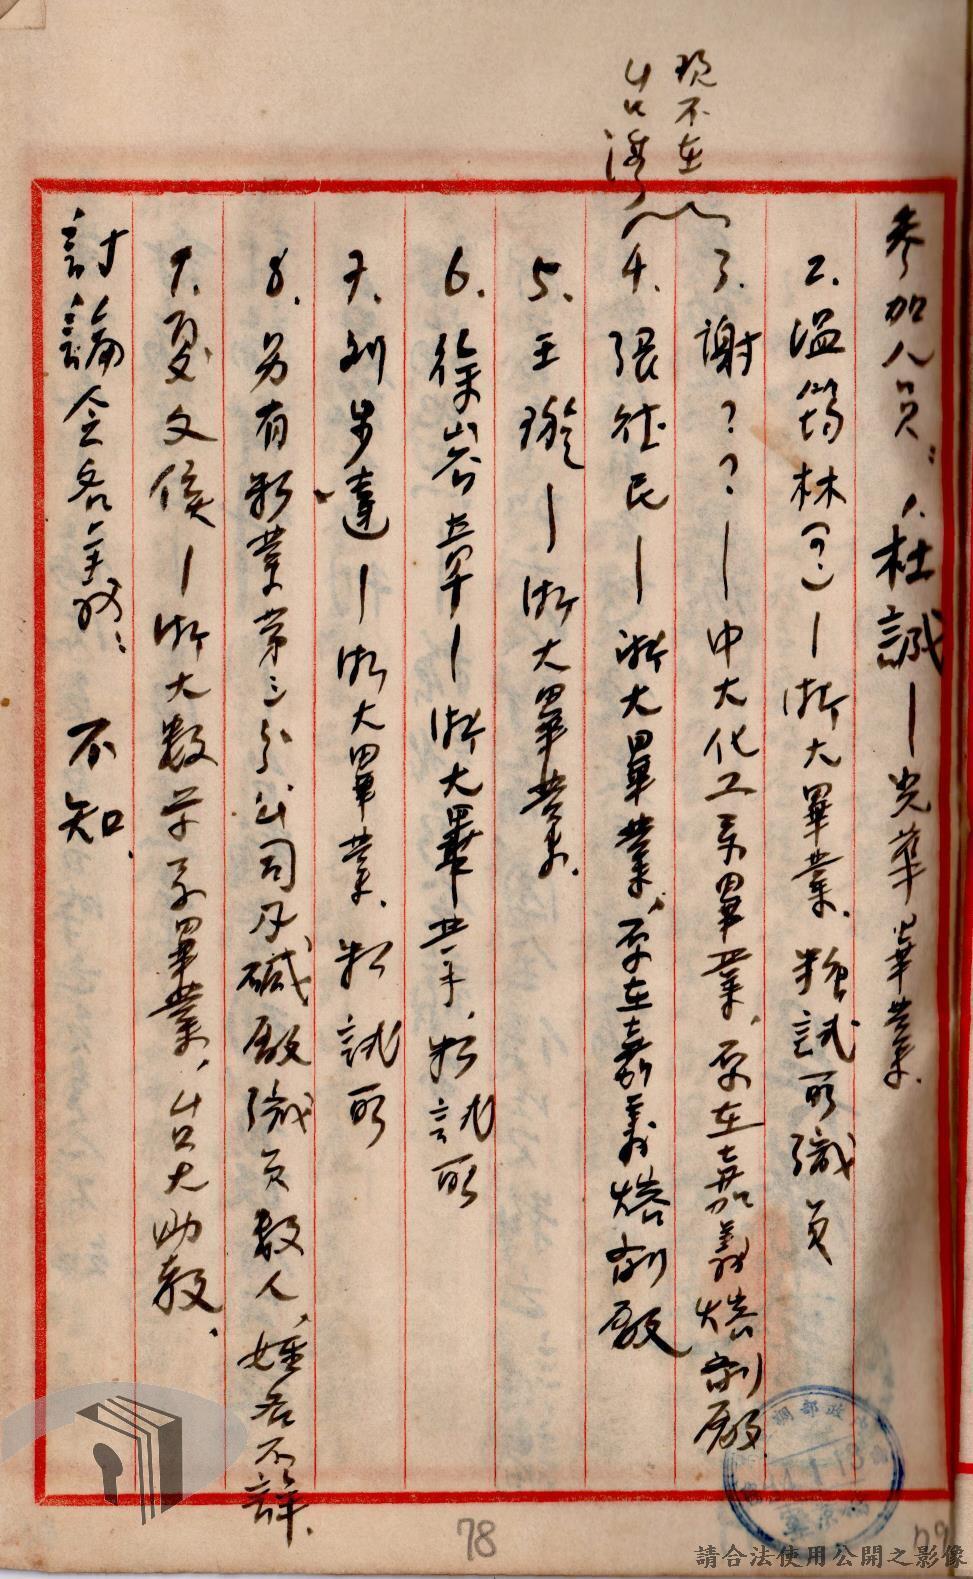 現不在
台灣
參加人員：1.杜誠—光華畢業.
2.溫筠林(?)—浙大畢業.糖試所職員
3.謝??—中大化工系畢業、原在嘉義溶劑廠
4.張徒民—浙大畢業、原在嘉義溶劑廠
5.王璇—浙大畢業.
6.徐谷章—浙大畢業、糖試所
7.刘步達—浙大畢業.糖試所
8.另有糖業第三分公司及碱廠職員数人，姓名不詳.
9.夏文俟—浙大数学系畢業，台大助教.
討論会名義：不知.
78
請合法使用公開之影像